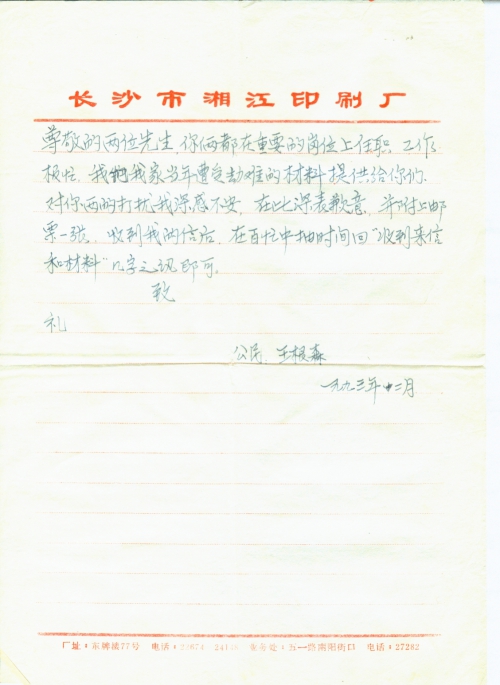 长沙市湘江印刷厂
尊敬的两位先生,你俩都在重要的岗位上任职,工作
极忙,我把我家当年遭受劫难的材料提供给你们.
对你两的打扰,我深感不安,在此深表歉意,并附上邮
票一张,收到我的信后,在百忙中抽时间回“收到来信
和材料”几字之讯即可。
致
礼
公民,王根森
一九九三年十二月
厂址:东牌楼77号 电话: 业务处:五一路南阳街口 电话:27282